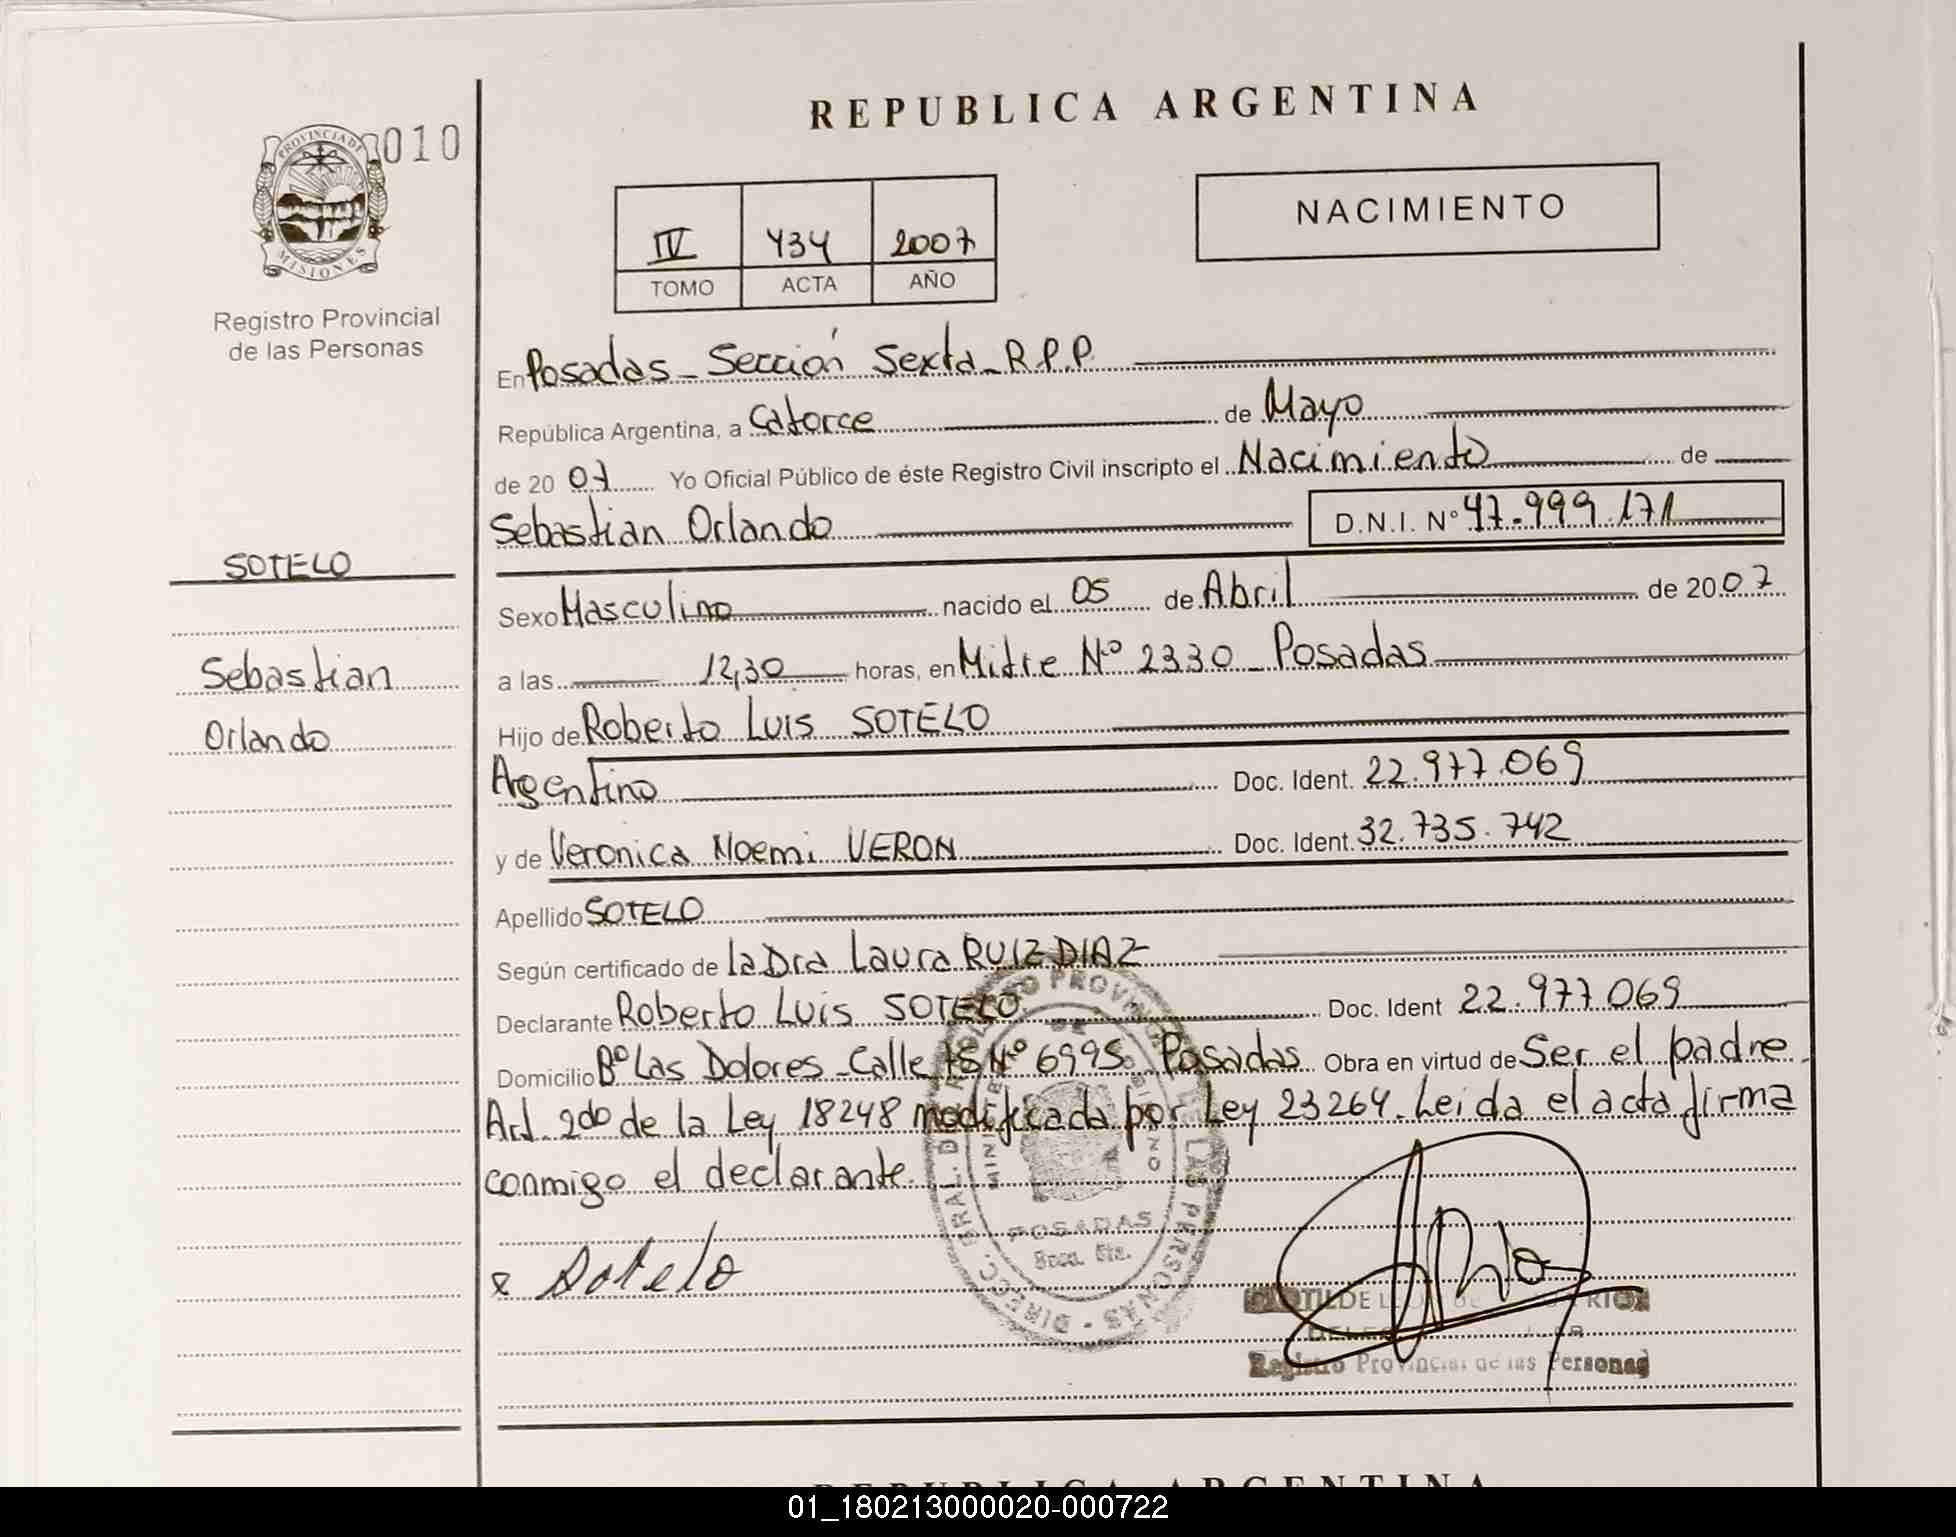 REPUBLICA ARGENTINA
PROVINCIA DE
MISIONES
010
Registro Provincial
de las Personas
NACIMIENTO
IV 434 2007
TOMO ACTA AÑO
En Posadas - Sección Sexta - R.P.P.
República Argentina, a Catorce de Mayo
de 20 07 Yo Oficial Público de éste Registro Civil inscripto el Nacimiento de
Sebastian Orlando D.N.I. Nº 47.999.171
SOTELO
Sebastian
Orlando
Sexo Masculino nacido el 05 de Abril de 2007
a las 12,30 horas, en Mitre Nº 2330 - Posadas
Hijo de Roberto Luis SOTELO
Argentino Doc. Ident. 22.977.069
y de Veronica Noemi VERON Doc. Ident. 32.735.742
Apellido SOTELO
Según certificado de la Dra Laura RUIZ DIAZ
Declarante Roberto Luis SOTELO Doc. Ident 22.977.069
Domicilio Bº Las Dolores - Calle Nº 6995 Posadas Obra en virtud de Ser el padre
Art. 2do de la Ley 18248 modificada por Ley 23264. Leida el acta firma
conmigo el declarante.
x Sotelo
POSADAS
Registro Provincial de las Personas
REPUBLICA ARGENTINA
01_180213000020-000722